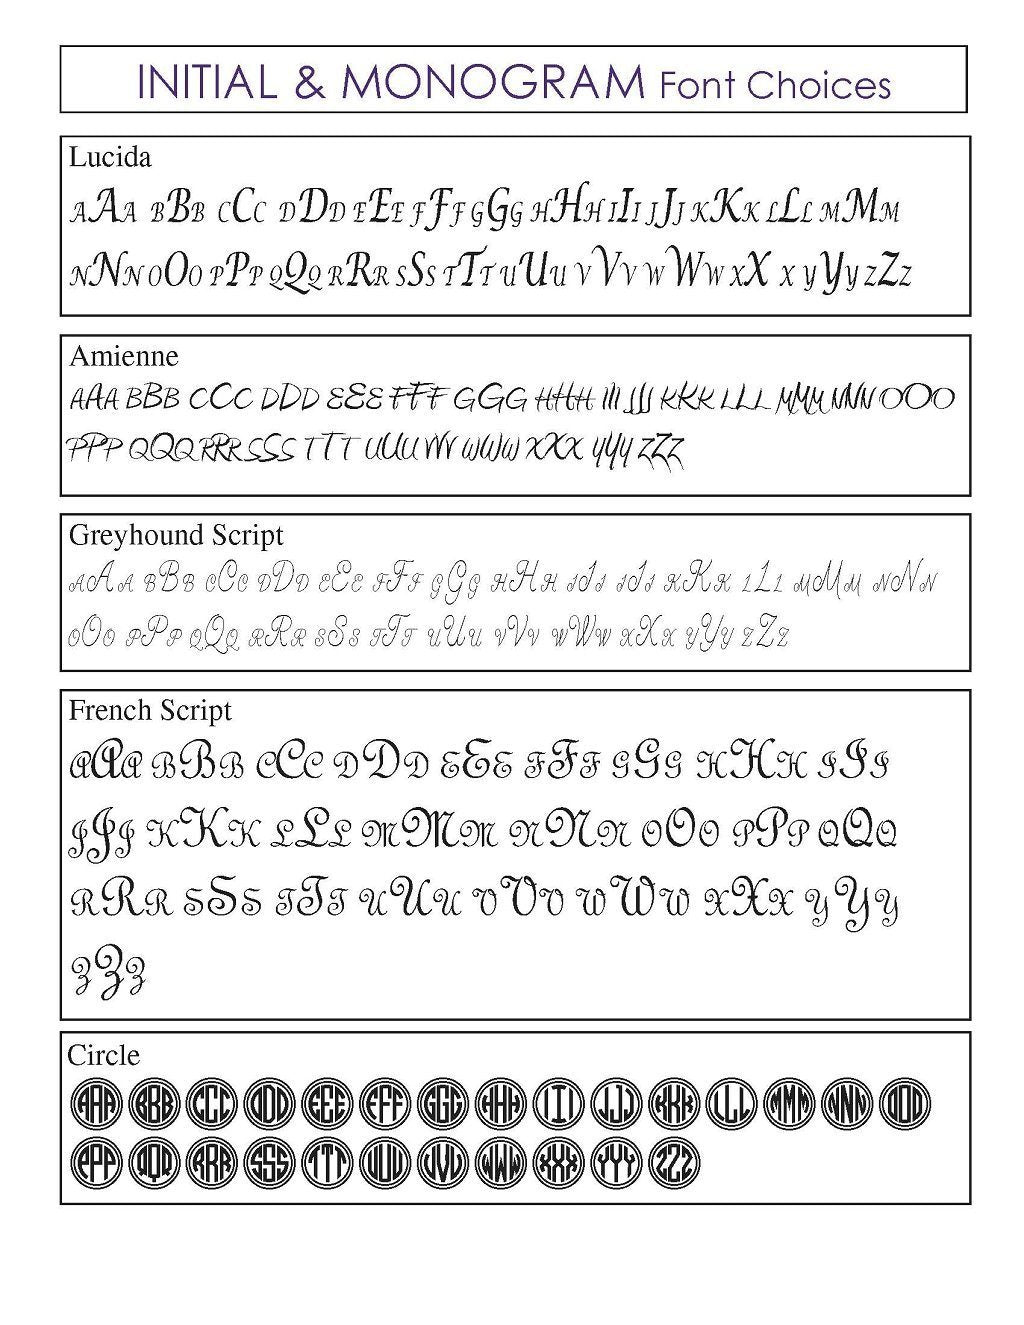 INITIAL & MONOGRAM Font Choices
Lucida
AAA BBB CCC DDD EEE FFF GGG HHH III JJJ KKK LLL MMM
NNN OOO PPP QQQ RRR SSS TTT UUU VVV WWW XXX YYY ZZZ
Amienne
AAA BBB CCC DDD EEE FFF GGG HHH III JJJ KKK LLL MMM NNN OOO
PPP QQQ RRR SSS TTT UUU VVV WWW XXX YYY ZZZ
Greyhound Script
AAA BBB CCC DDD EEE FFF GGG HHH III JJJ KKK LLL MMM NNN
OOO PPP QQQ RRR SSS TTT UUU VVV WWW XXX YYY ZZZ
French Script
AAA BBB CCC DDD EEE FFF GGG HHH III
JJJ KKK LLL MMM NNN OOO PPP QQQ
RRR SSS TTT UUU VVV WWW XXX YYY
ZZZ
Circle
AAA BBB CCC DDD EEE FFF GGG HHH III JJJ KKK LLL MMM NNN OOO
PPP QQQ RRR SSS TTT UUU VVV WWW XXX YYY ZZZ